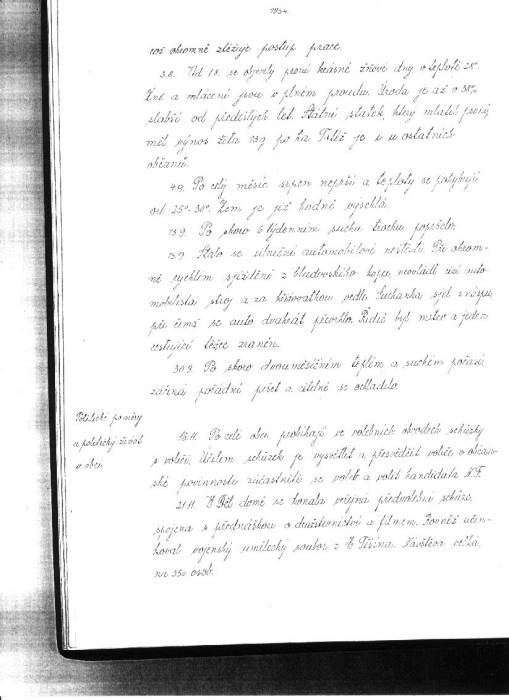 1954.
což ohromně ztěžuje postup prace.
3.8. Od 1.8. se objevily první krásné žňové dny o teplotě 28°.
Žně a mlácení jsou v plném proudu. Úroda je až o 35%
slabší od předešlých let. Státní statek, který mlátil první
měl výnos žita 13q po ha. Totéž je i u ostatních
občanů.
4.9. Po celý měsíc srpen neprší a teploty se pohybují
od 25°-30°. Zem je již hodně vyschlá.
13.9. Po skoro 6 týdenním suchu trochu popršelo.
13.9. Stalo se silniční automobilové neštěstí. Při ohrom-
ně rychlém sjíždění z bludovského kopce neovládl řidič auto
mobilista stroj a za křižovatkou vedle Sucharka sjel s náspu,
při čemž se auto dvakrát převrhlo. Řidič byl mrtev a jeden
cestující těžce zraněn.
30.9. Po skoro dvouměsíčním teplém a suchém počasí
začíná pořádní pršet a citelně se ochladilo.
Politické poměry
a politický život
v obci
15.11. Po celé obci probíhají ve volebních obvodech schůzky
s voliči. Účelem schůzek je vysvětlit a přesvědčit voliče o občan-
ské povinnosti zúčastniti se voleb a volit kandidáta N.F.
21.11. V Děl. domě se konala veřejná předvolební schůze,
spojena s přednáškou o družstevnictví a filmem. Rovněž účin-
koval vojenský umělecký soubor z Č. Těšína. Návštěva velká,
na 350 osob.